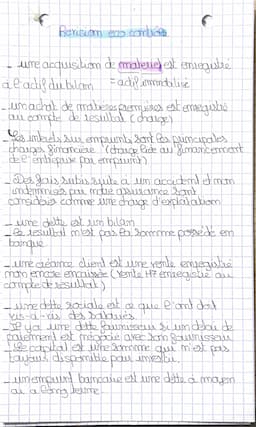 Révision eco combiée
- une acquisition de materiel est enregistré
à l'actif du bilan = actif immobilisé
- un achat de matières premières est enregistré
au compte de résultat (charge)
- les interêts sur emprunts sont les principales
charges financière (charge liée au financement
de l'entreprise par emprunt)
- Des frais subis suite à un accident et non
indemnisés par notre assurance sont
considérés comme une charge d'exploitation
- une dette est un bilan
- Le résultat n'est pas la somme possédé en
banque
- une créance client est une vente enregistré
non encore encaissée (vente HT enregistré au
compte de résultat)
- une dette sociale est ce que l'ent doit
vis-à-vis des salariés.
- Il y a une dette fournisseur si un délai de
paiement est négocié avec son fournisseur
- Le capital est une somme qui n'est pas
toujours disponible pour investir.
- un emprunt bancaire est une dette à moyen
ou a long terme